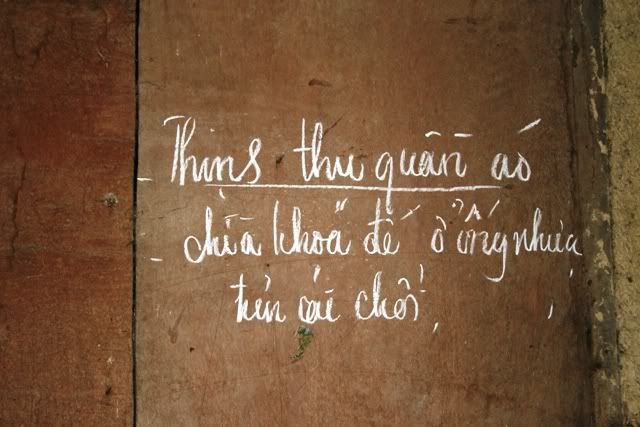 - Thins thu quần áo
- chìa khoá để ở ống nhựa
trên cái chổi.